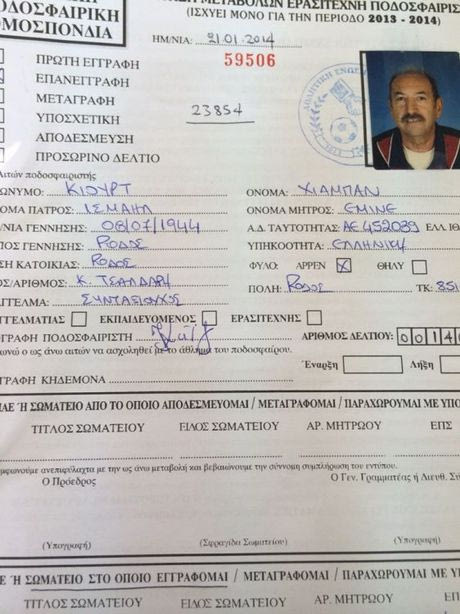 ΟΔΟΣΦΑΙΡΙΚΗ
ΟΜΟΣΠΟΝΔΙΑ
ΜΕΤΑΒΟΛΩΝ ΕΡΑΣΙΤΕΧΝΗ ΠΟΔΟΣΦΑΙΡΙΣ
(ΙΣΧΥΕΙ ΜΟΝΟ ΓΙΑ ΤΗΝ ΠΕΡΙΟΔΟ 2013 - 2014)
ΗΜ/ΝΙΑ: 21.01.2014
59506
ΠΡΩΤΗ ΕΓΓΡΑΦΗ
ΕΠΑΝΕΓΓΡΑΦΗ
ΜΕΤΑΓΡΑΦΗ
ΥΠΟΣΧΕΤΙΚΗ 23854
ΑΠΟΔΕΣΜΕΥΣΗ
ΠΡΟΣΩΡΙΝΟ ΔΕΛΤΙΟ
Αιτών ποδοσφαιριστής
ΩΝΥΜΟ: ΚΙΟΥΡΤ ΟΝΟΜΑ: ΧΙΑΜΠΑΝ
ΟΜΑ ΠΑΤΡΟΣ: ΙΣΜΑΗΛ ΟΝΟΜΑ ΜΗΤΡΟΣ: ΕΜΙΝΕ
/ΝΙΑ ΓΕΝΝΗΣΗΣ: 08/07/1944 Α.Δ. ΤΑΥΤΟΤΗΤΑΣ: ΑΕ 452089 ΕΛΛ. ΙΘ
ΟΣ ΓΕΝΝΗΣΗΣ: ΡΟΔΟΣ ΥΠΗΚΟΟΤΗΤΑ: ΕΛΛΗΝΙΚΗ
ΣΗ ΚΑΤΟΙΚΙΑΣ: ΡΟΔΟΣ ΦΥΛΟ: ΑΡΡΕΝ X ΘΗΛΥ
ΟΣ/ΑΡΙΘΜΟΣ: Κ. ΤΣΑΛΔΑΡΗ ΠΟΛΗ: ΡΟΔΟΣ ΤΚ: 851
ΓΕΛΜΑ: ΣΥΝΤΑΞΙΟΥΧΟΣ
ΓΕΛΜΑΤΙΑΣ ΕΚΠΑΙΔΕΥΟΜΕΝΟΣ ΕΡΑΣΙΤΕΧΝΗΣ
ΓΡΑΦΗ ΠΟΔΟΣΦΑΙΡΙΣΤΗ ΑΡΙΘΜΟΣ ΔΕΛΤΙΟΥ: 0014
ωνώ ο ως άνω αιτών να ασχοληθεί με το άθλημα του ποδοσφαίρου.
Έναρξη Λήξη
ΓΡΑΦΗ ΚΗΔΕΜΟΝΑ
ΠΑΕ Ή ΣΩΜΑΤΕΙΟ ΑΠΟ ΤΟ ΟΠΟΙΟ ΑΠΟΔΕΣΜΕΥΟΜΑΙ / ΜΕΤΑΓΡΑΦΟΜΑΙ / ΠΑΡΑΧΩΡΟΥΜΑΙ ΜΕ ΥΠΟ
ΤΙΤΛΟΣ ΣΩΜΑΤΕΙΟΥ ΕΙΔΟΣ ΣΩΜΑΤΕΙΟΥ ΑΡ. ΜΗΤΡΩΟΥ ΕΠΣ
μφωνούμε ανεπιφύλαχτα με την ως άνω μεταβολή και βεβαιώνουμε την σύννομη συμπλήρωση του εντύπου.
Ο Πρόεδρος Ο Γεν. Γραμματέας ή Διευθ. Σύ
(Υπογραφή) (Σφραγίδα Σωματείου) (Υπογραφή)
Ε Ή ΣΩΜΑΤΕΙΟ ΣΤΟ ΟΠΟΙΟ ΕΓΓΡΑΦΟΜΑΙ / ΜΕΤΑΓΡΑΦΟΜΑΙ / ΠΑΡΑΧΩΡΟΥΜΑΙ ΜΕ Υ
ΤΙΤΛΟΣ ΣΩΜΑΤΕΙΟΥ ΕΙΔΟΣ ΣΩΜΑΤΕΙΟΥ ΑΡ. ΜΗΤΡΩΟΥ